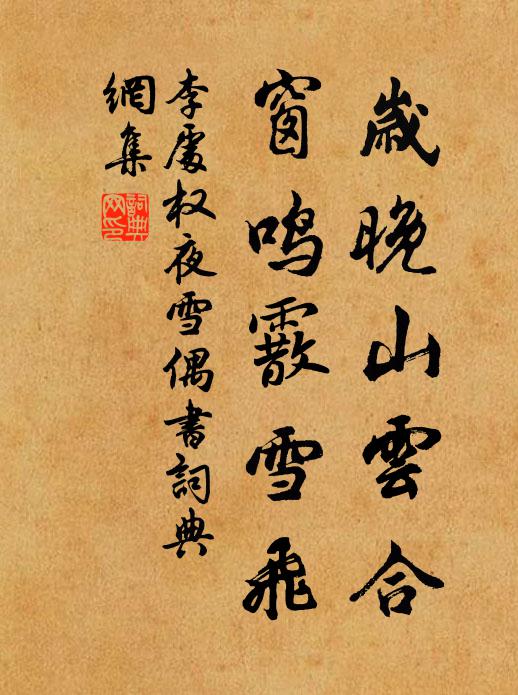 歲晚山雲合
窗鳴霰雪飛
李處权夜雪偶書詞典
網集
詞典
网印